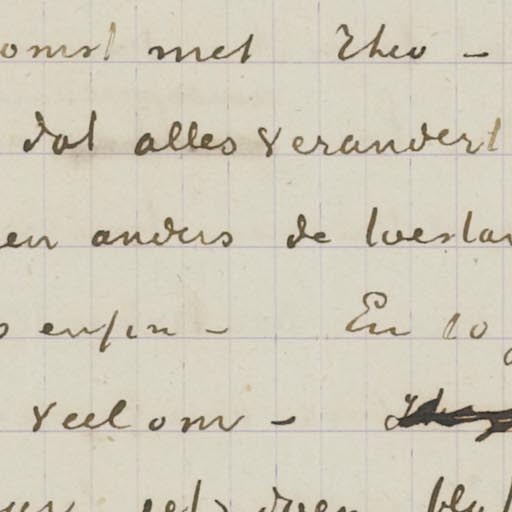 omst met Theo –
dat alles verandert
en anders de toestan
enfin – En zo
veel om –
doen